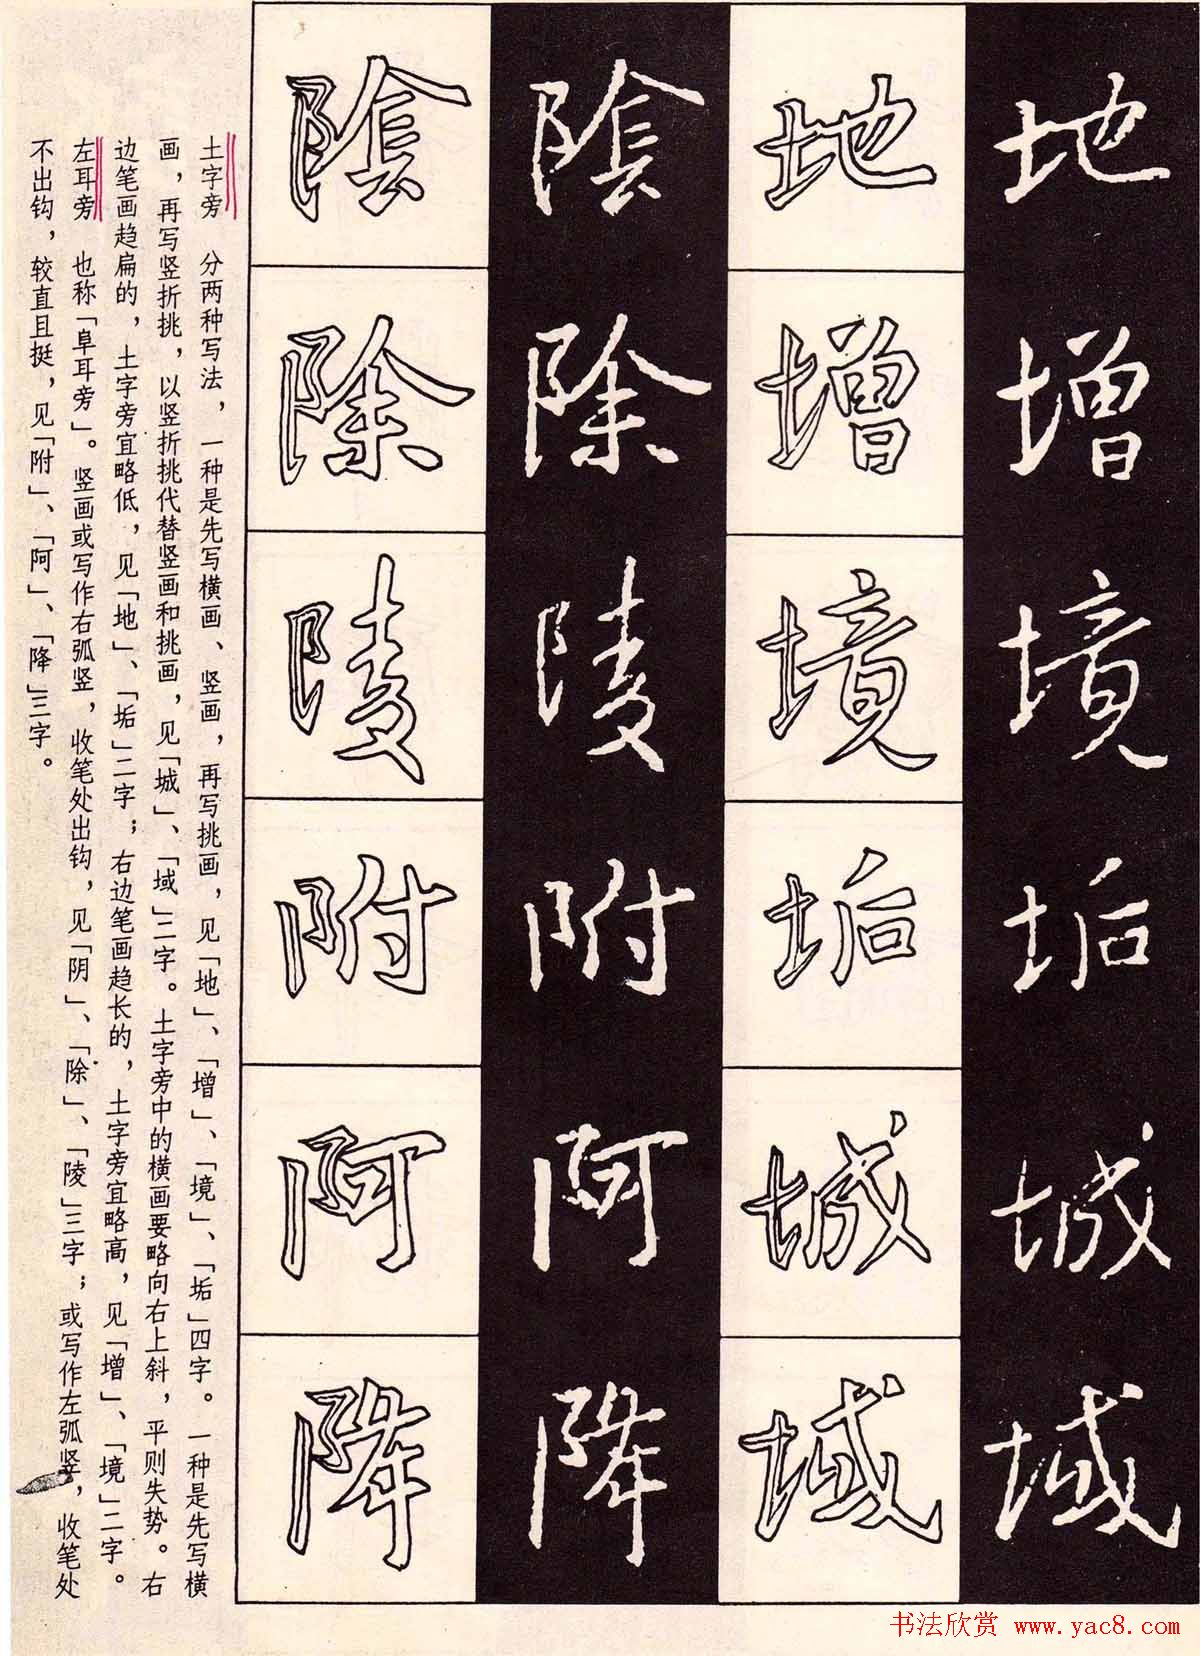 地
增
境
垢
城
域
地
增
境
垢
城
域
陰
除
陵
附
阿
降
陰
除
陵
附
阿
降
土字旁　分两种写法，一种是先写横画、竖画，再写挑画，见「地」、「增」、「境」、「垢」四字。一种是先写横
画，再写竖折挑，以竖折挑代替竖画和挑画，见「城」、「域」二字。土字旁中的横画要略向右上斜，平则失势。右
边笔画趋扁的，土字旁宜略低，见「地」、「垢」二字；右边笔画趋长的，土字旁宜略高，见「增」、「境」二字。
左耳旁　也称「阜耳旁」。竖画或写作右弧竖，收笔处出钩，见「阴」、「除」、「陵」三字；或写作左弧竖，收笔处
不出钩，较直且挺，见「附」、「阿」、「降」三字。
书法欣赏 www.yac8.com